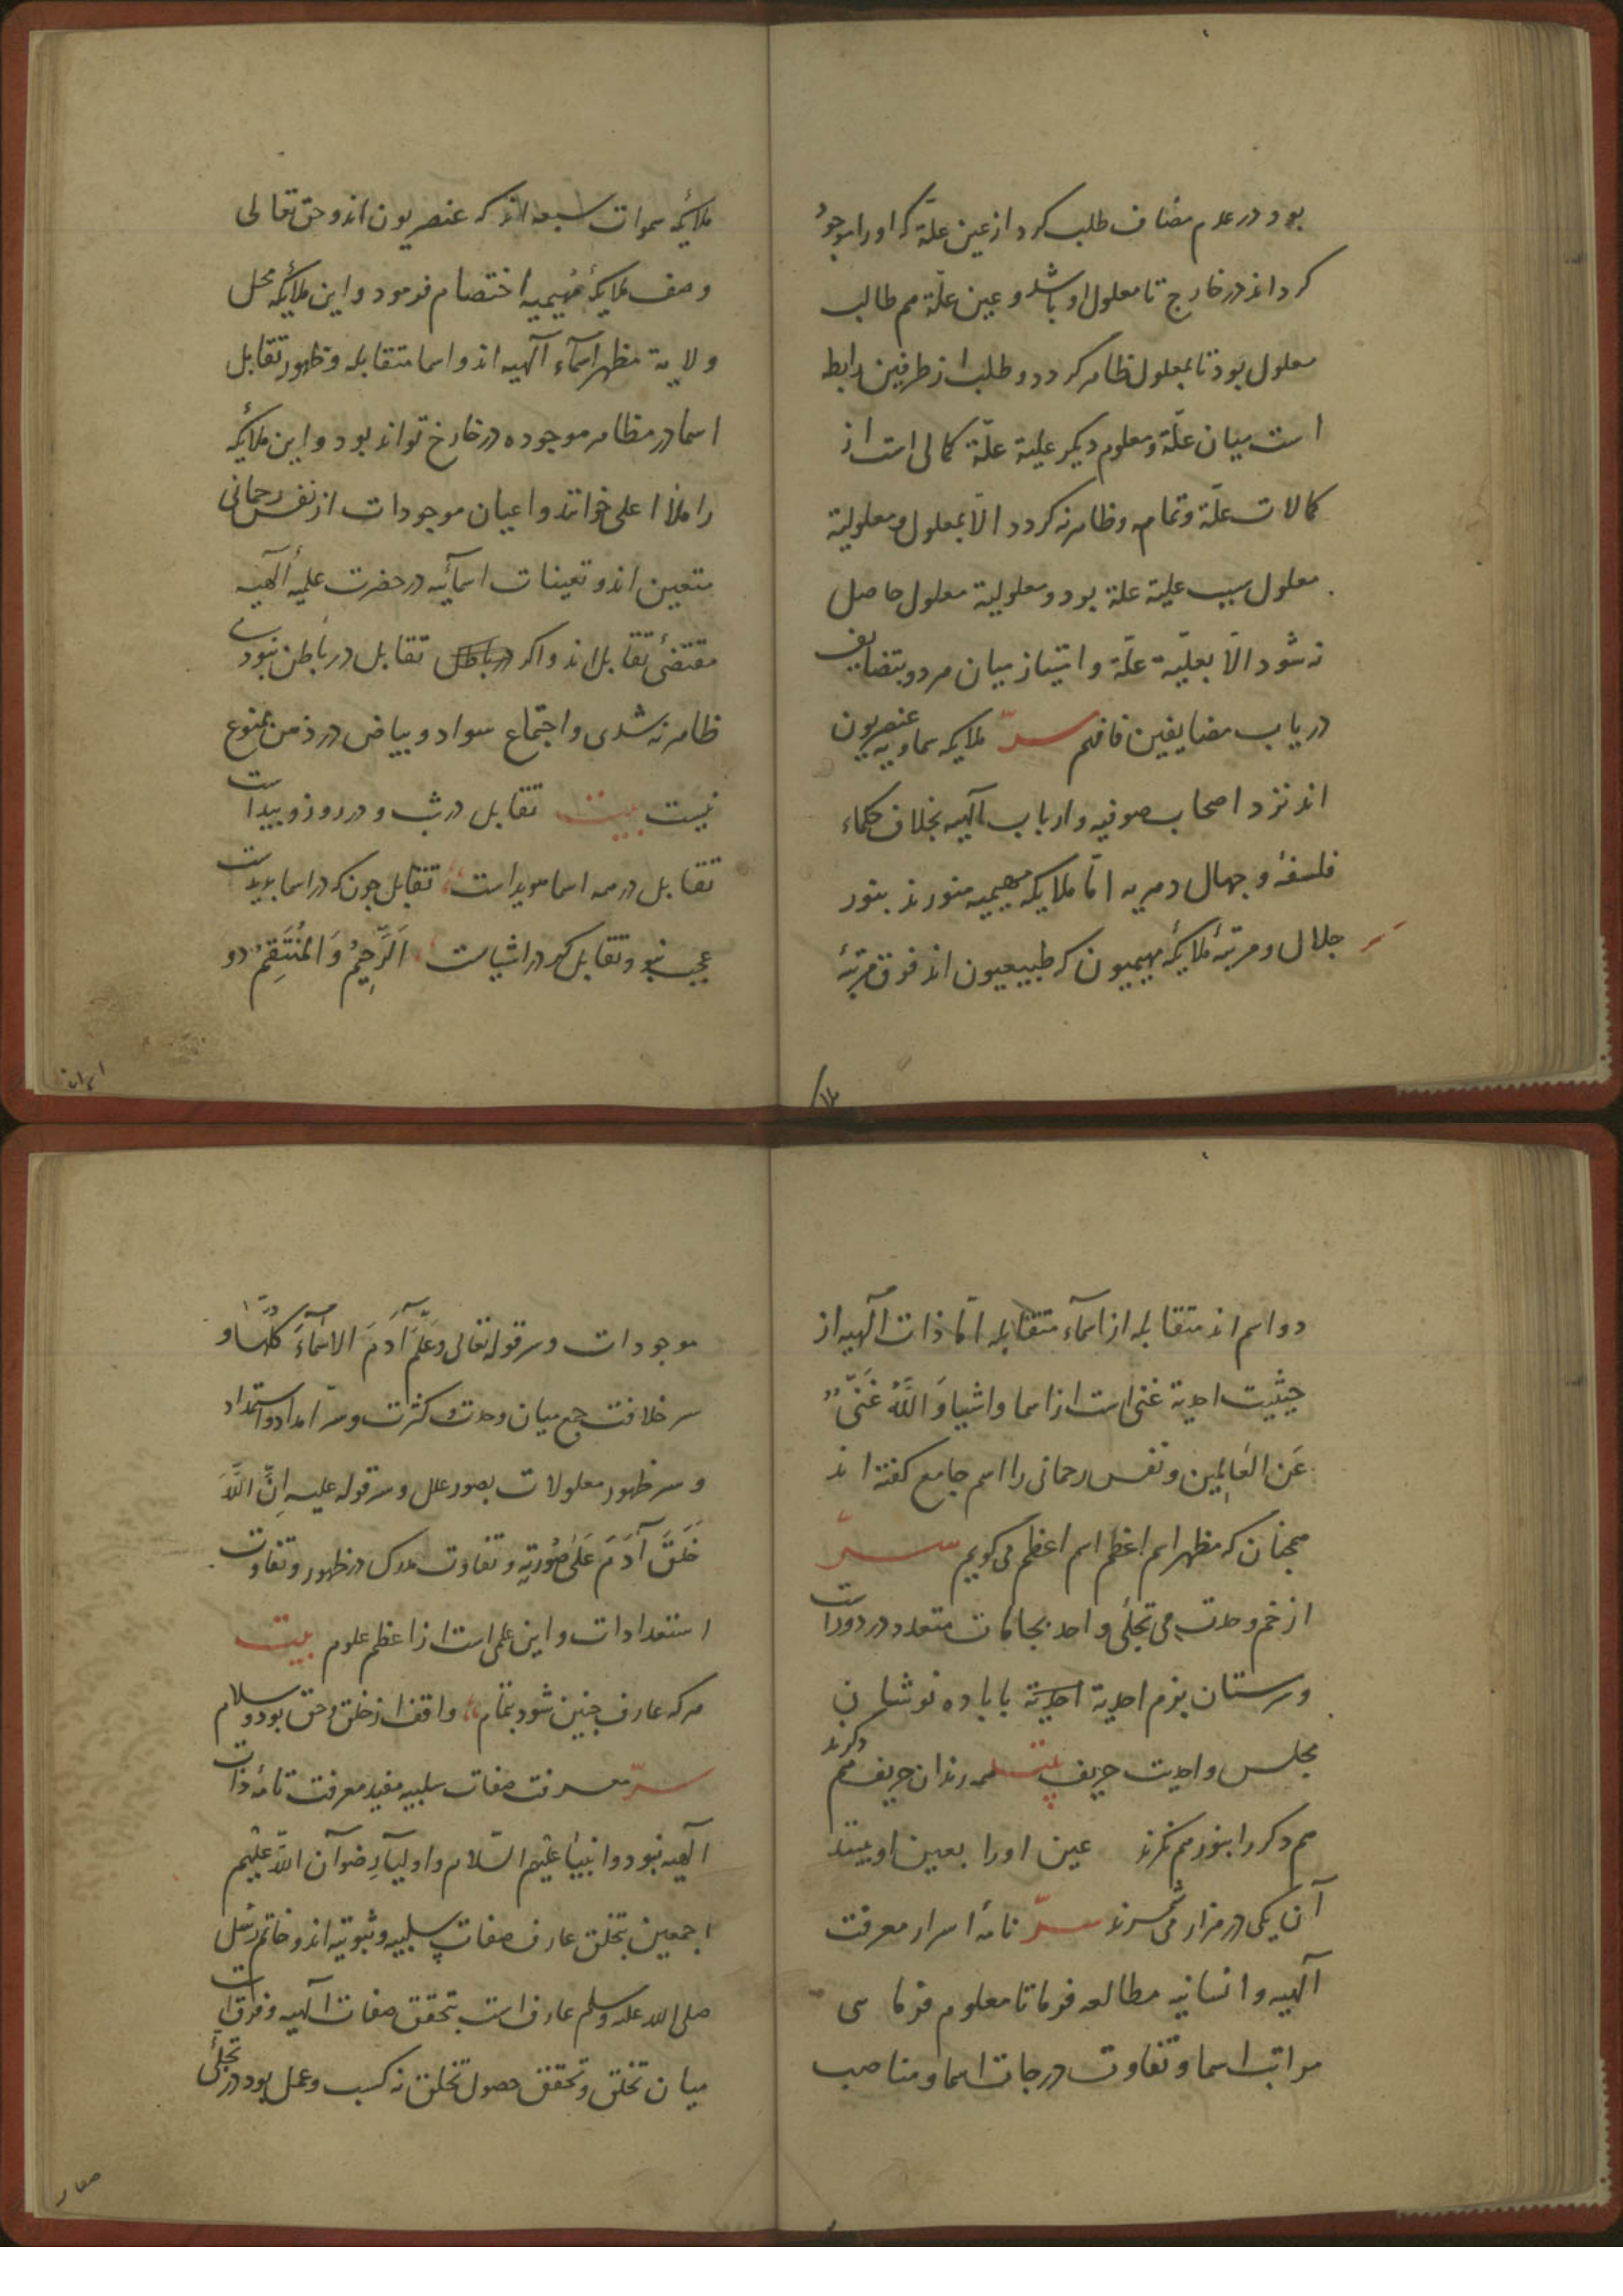 بود در عدم مضاف طلب کرد از عین علّة که او را موجود
کرداند در خارج تا معلول او باشد و عین علّة هم طالب
معلول بود تا بمعلول ظاهر کردد و طلب از طرفین رابطه
است میان علّة و معلوم دیکر علیة علّة کمالی است از
کمالات علّة و تمام و ظاهر نه کردد الّا بمعلول و معلولیة
معلول سبب علیة علة بود و معلولیة معلول حاصل
نه شود الّا بعلیّة علّة و امتیاز میان هر دو بتضایف
دریاب مضایفین فافهم سرّ ملایکه سماویه عنصریون
اند نزد اصحاب صوفیه و ارباب آلهیه بخلاف حکماء
فلسفه و جهال دهریه امّا ملایکه مهیمیه منورند بنور
جلال و مرتبهٔ ملایکهٔ مهیمیون که طبیعیون اند فوق مرتبهٔ
ملایکهٔ سموات سبعه اند که عنصریون اند و حق تعالی
وصف ملایکهٔ مُهیمیه اختصام فرمود و این ملایکه محل
ولایة مظهر اسمآء آلهیه اند و اسما متقابله و ظهور تقابل
اسما در مظاهر موجوده در خارج تواند بود و این ملایکه
را ملأ اعلی خوانند و اعیان موجودات از نفس رحمانی
متعین اند و تعینات اسمآئیه در حضرت علمیهٔ آلهیه
مقتضیٔ تقابل اند و اکر درباطل تقابل در باطن نبودی
ظاهر نه شدی و اجتماع سواد و بیاض در ذهن ممنوع
نیست بیت تقابل در شب و در روز و پیداست
تقابل در همه اسما هویداست تقابل چون که در اسما پدیدست
عجب نبود تقابل کر در اشیاست اَلرَّحِیمُ وَ المُنْتَقِمُ دو
دو اسم اند متقابله از اسمآء متقابله امّا ذات آلهیه از
حیثیت احدیة غنی است از اسما و اشیا وَ اللَّهُ غَنیٌّ
عَنِ العَالمِین و نفس رحمانی را اسم جامع کفته اند
همچنان که مظهر اسم اعظم اسم اعظم می کویم سرّ
از خم وحدت می تجلّی واحد بجامات متعدد در دورانست
و سرمستان بزم احدیة احدیة با باده نوشان
مجلس واحدیت حریف بیت همه رندان حریف همدکرند
هم دکر را بنور هم نکرند عین او را بعین او بینند
آن یکی در هزار می شمرند سرّ نامهٔ اسرار معرفت
آلهیه و انسانیه مطالعه فرما تا معلوم فرمایی
مراتب اسما و تفاوت درجات اسما و مناصب
موجودات و سر قوله تعالی وَ علَّمَ آدَمَ الاَسْمَآءَ کُلَّهَا و
سر خلافت جمع میان وحدت و کثرت و سرّ امداد و استمداد
و سر ظهور معلولات بصور علل و سر قوله علیه اِنَّ اللَّهَ
خَلَقَ آدَمَ عَلَی صُورَتِهِ و تفاوت مدرک در ظهور و تفاوت
استعدادات و این علمی است از اعظم علوم بیت
هرکه عارف چنین شود بتمام واقف از خلق و حق بود و سلام
سرّ معرفت صفات سلبیه مفید معرفت تامهٔ ذات
آلهیه نبود و انبیا علیهم السّلام و اولیآء رضوآن اللّه علیهم
اجمعین بتخلق عارف صفات سلبیه و ثبوتیه اند و خاتم رُسُل
صلی الله علیه و سلم عارف است بتحقق صفات آلهیه و فرق است
میان تخلق و تحقق حصول تخلق نه کسب و عمل بود در تجلّیٔ